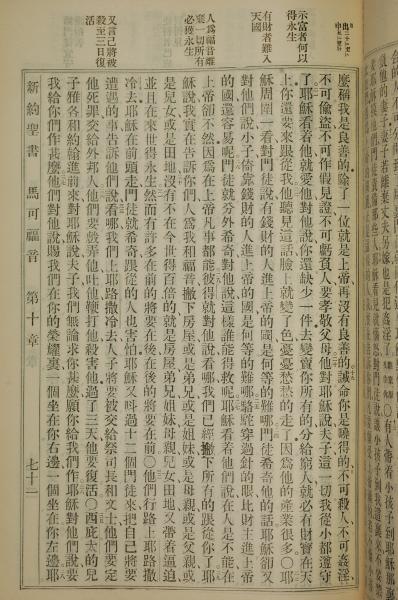 示富者何以
得永生
有財者難入
天國
人爲福音離
棄一切所有
必獲永生
又言己將被
殺至三日復
活
麼稱我是良善的除了一位就是上帝再沒有良善的誡命你是曉得的不可殺人不可姦淫
不可偷盜不可作假見證不可虧負人要孝敬父母他對耶穌說夫子這一切我從小都遵守
了耶穌看着他就愛他對他說你還缺少一件去變賣你所有的分給窮人就必有財寶在天
上你還要來跟從我他聽見這話臉上就變了色憂憂愁愁的走了因爲他的產業很多○耶
穌周圍一看對門徒說有錢財的人進上帝的國是何等的難哪門徒希奇他的話耶穌卻又
對他們說小子倚靠錢財的人進上帝的國是何等的難哪駱駝穿過針的眼比財主進上帝
的國還容易呢門徒就分外希奇對他說這樣誰能得救呢耶穌看着他們說在人是不能在
上帝卻不然因爲在上帝凡事都能彼得就對他說看哪我們已經撇下所有的跟從你了耶
穌說我實在告訴你們人爲我和福音撇下房屋或是弟兄或是姐妹或是母親或是父親或
是兒女或是田地沒有不在今世得百倍的就是房屋弟兄姐妹母親兒女田地又帶着逼迫
並且在來世得永生然而有許多在前的將要在後在後的將要在前○他們行路上耶路撒
冷去耶穌在前頭走門徒就希奇跟從的人也害怕耶穌又呌過十二個門徒來把自己將要
遭遇的事告訴他們說看哪我們上耶路撒冷去人子將要被交給祭司長和文士他們要定
他死罪交給外邦人他們要戲弄他吐他鞭打他殺害他過了三天他要復活○西庇太的兒
子雅各和約翰進前來對耶穌說夫子我們無論求你甚麼願你給我們作耶穌對他們說要
我給你們作甚麼他們對他說賜我們在你的榮耀裏一個坐在你右邊一個坐在你左邊耶
新約聖書 馬可福音 第十章 七十二